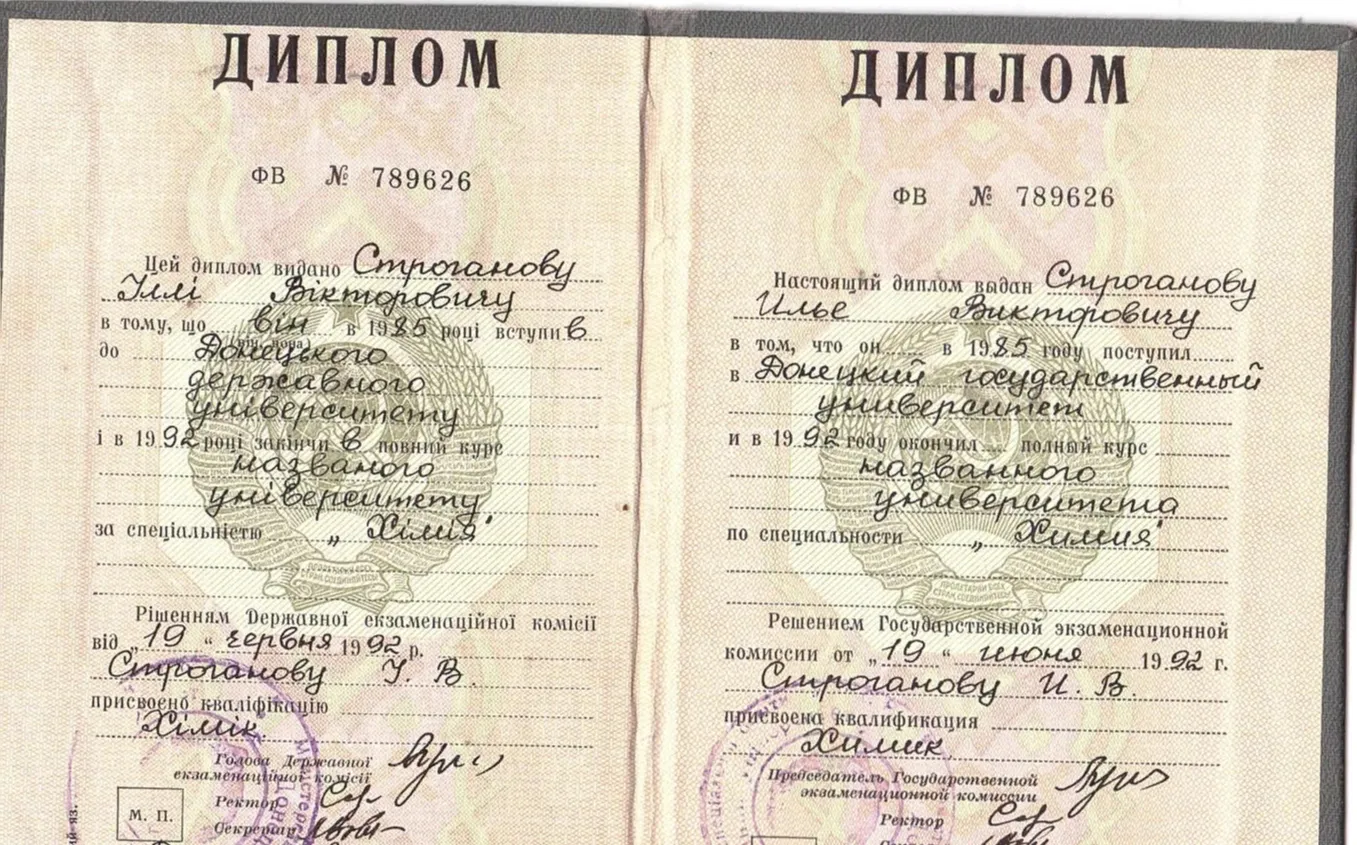 ДИПЛОМ
ФВ № 789626
Цей диплом видано Строганову
Іллі Вікторовичу
в тому, що він в 1985 році вступив
(він, вона)
до Донецького
державного
університету
і в 1992 році закінчив повний курс
названого
університету
за спеціальністю „Хімія"
ПРОЛЕТАРИИ ВСЕХ
СТРАН, СОЕДИНЯЙТЕСЬ!
Рішенням Державної екзаменаційної комісії
від „19" червня 1992 р.
Строганову І. В.
присвоєно кваліфікацію
Хімік
Голова Державної
екзаменаційної комісії
Ректор
Секретар
М. П.
ДИПЛОМ
ФВ № 789626
Настоящий диплом выдан Строганову
Илье Викторовичу
в том, что он в 1985 году поступил
в Донецкий государственный
университет
и в 1992 году окончил полный курс
названного
университета
по специальности „Химия"
ПРОЛЕТАРИИ ВСЕХ
СТРАН, СОЕДИНЯЙТЕСЬ!
Решением Государственной экзаменационной
комиссии от „19" июня 1992 г.
Строганову И. В.
присвоена квалификация
Химик
Председатель Государственной
экзаменационной комиссии
Ректор